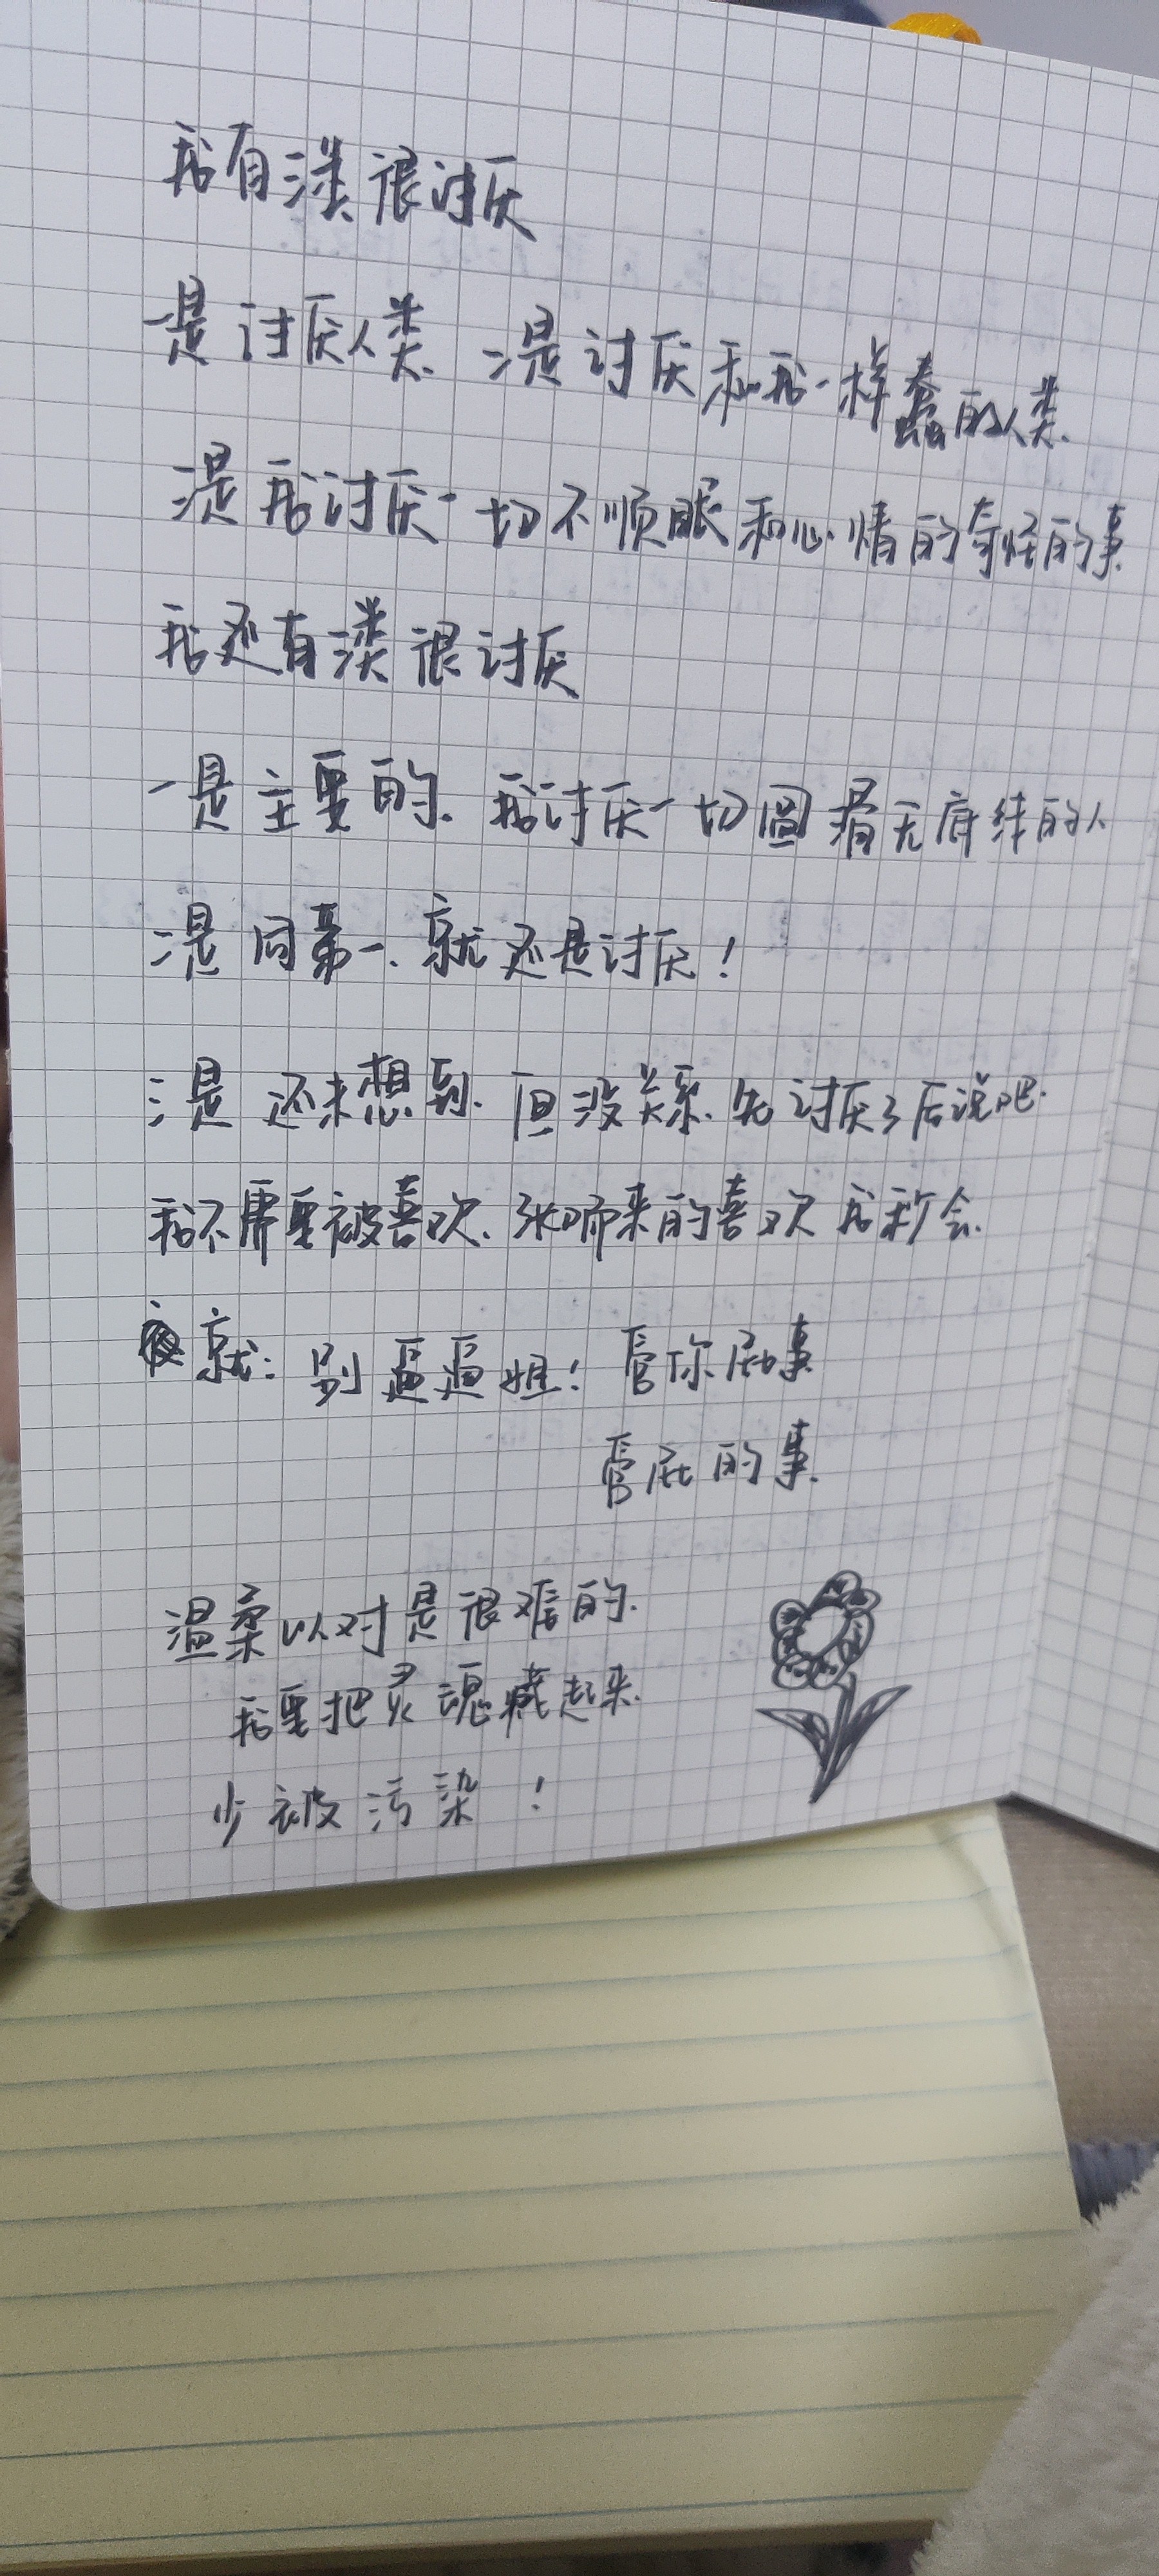 我有三类很讨厌
一是讨厌人类. 二是讨厌和我一样蠢的人类.
三是我讨厌一切不顺眼和心情的奇怪的事
我还有三类很讨厌
一是主要的. 我讨厌一切圆滑无底线的人
二是同第一. 就还是讨厌!
三是还未想到. 但没关系. 先讨厌了后说吧.
我不需要被喜欢. 求来的喜欢我
就: 别逼逼姐! 管你屁事
管屁的事.
温柔以对是很难的.
我要把灵魂藏起来.
少被污染!